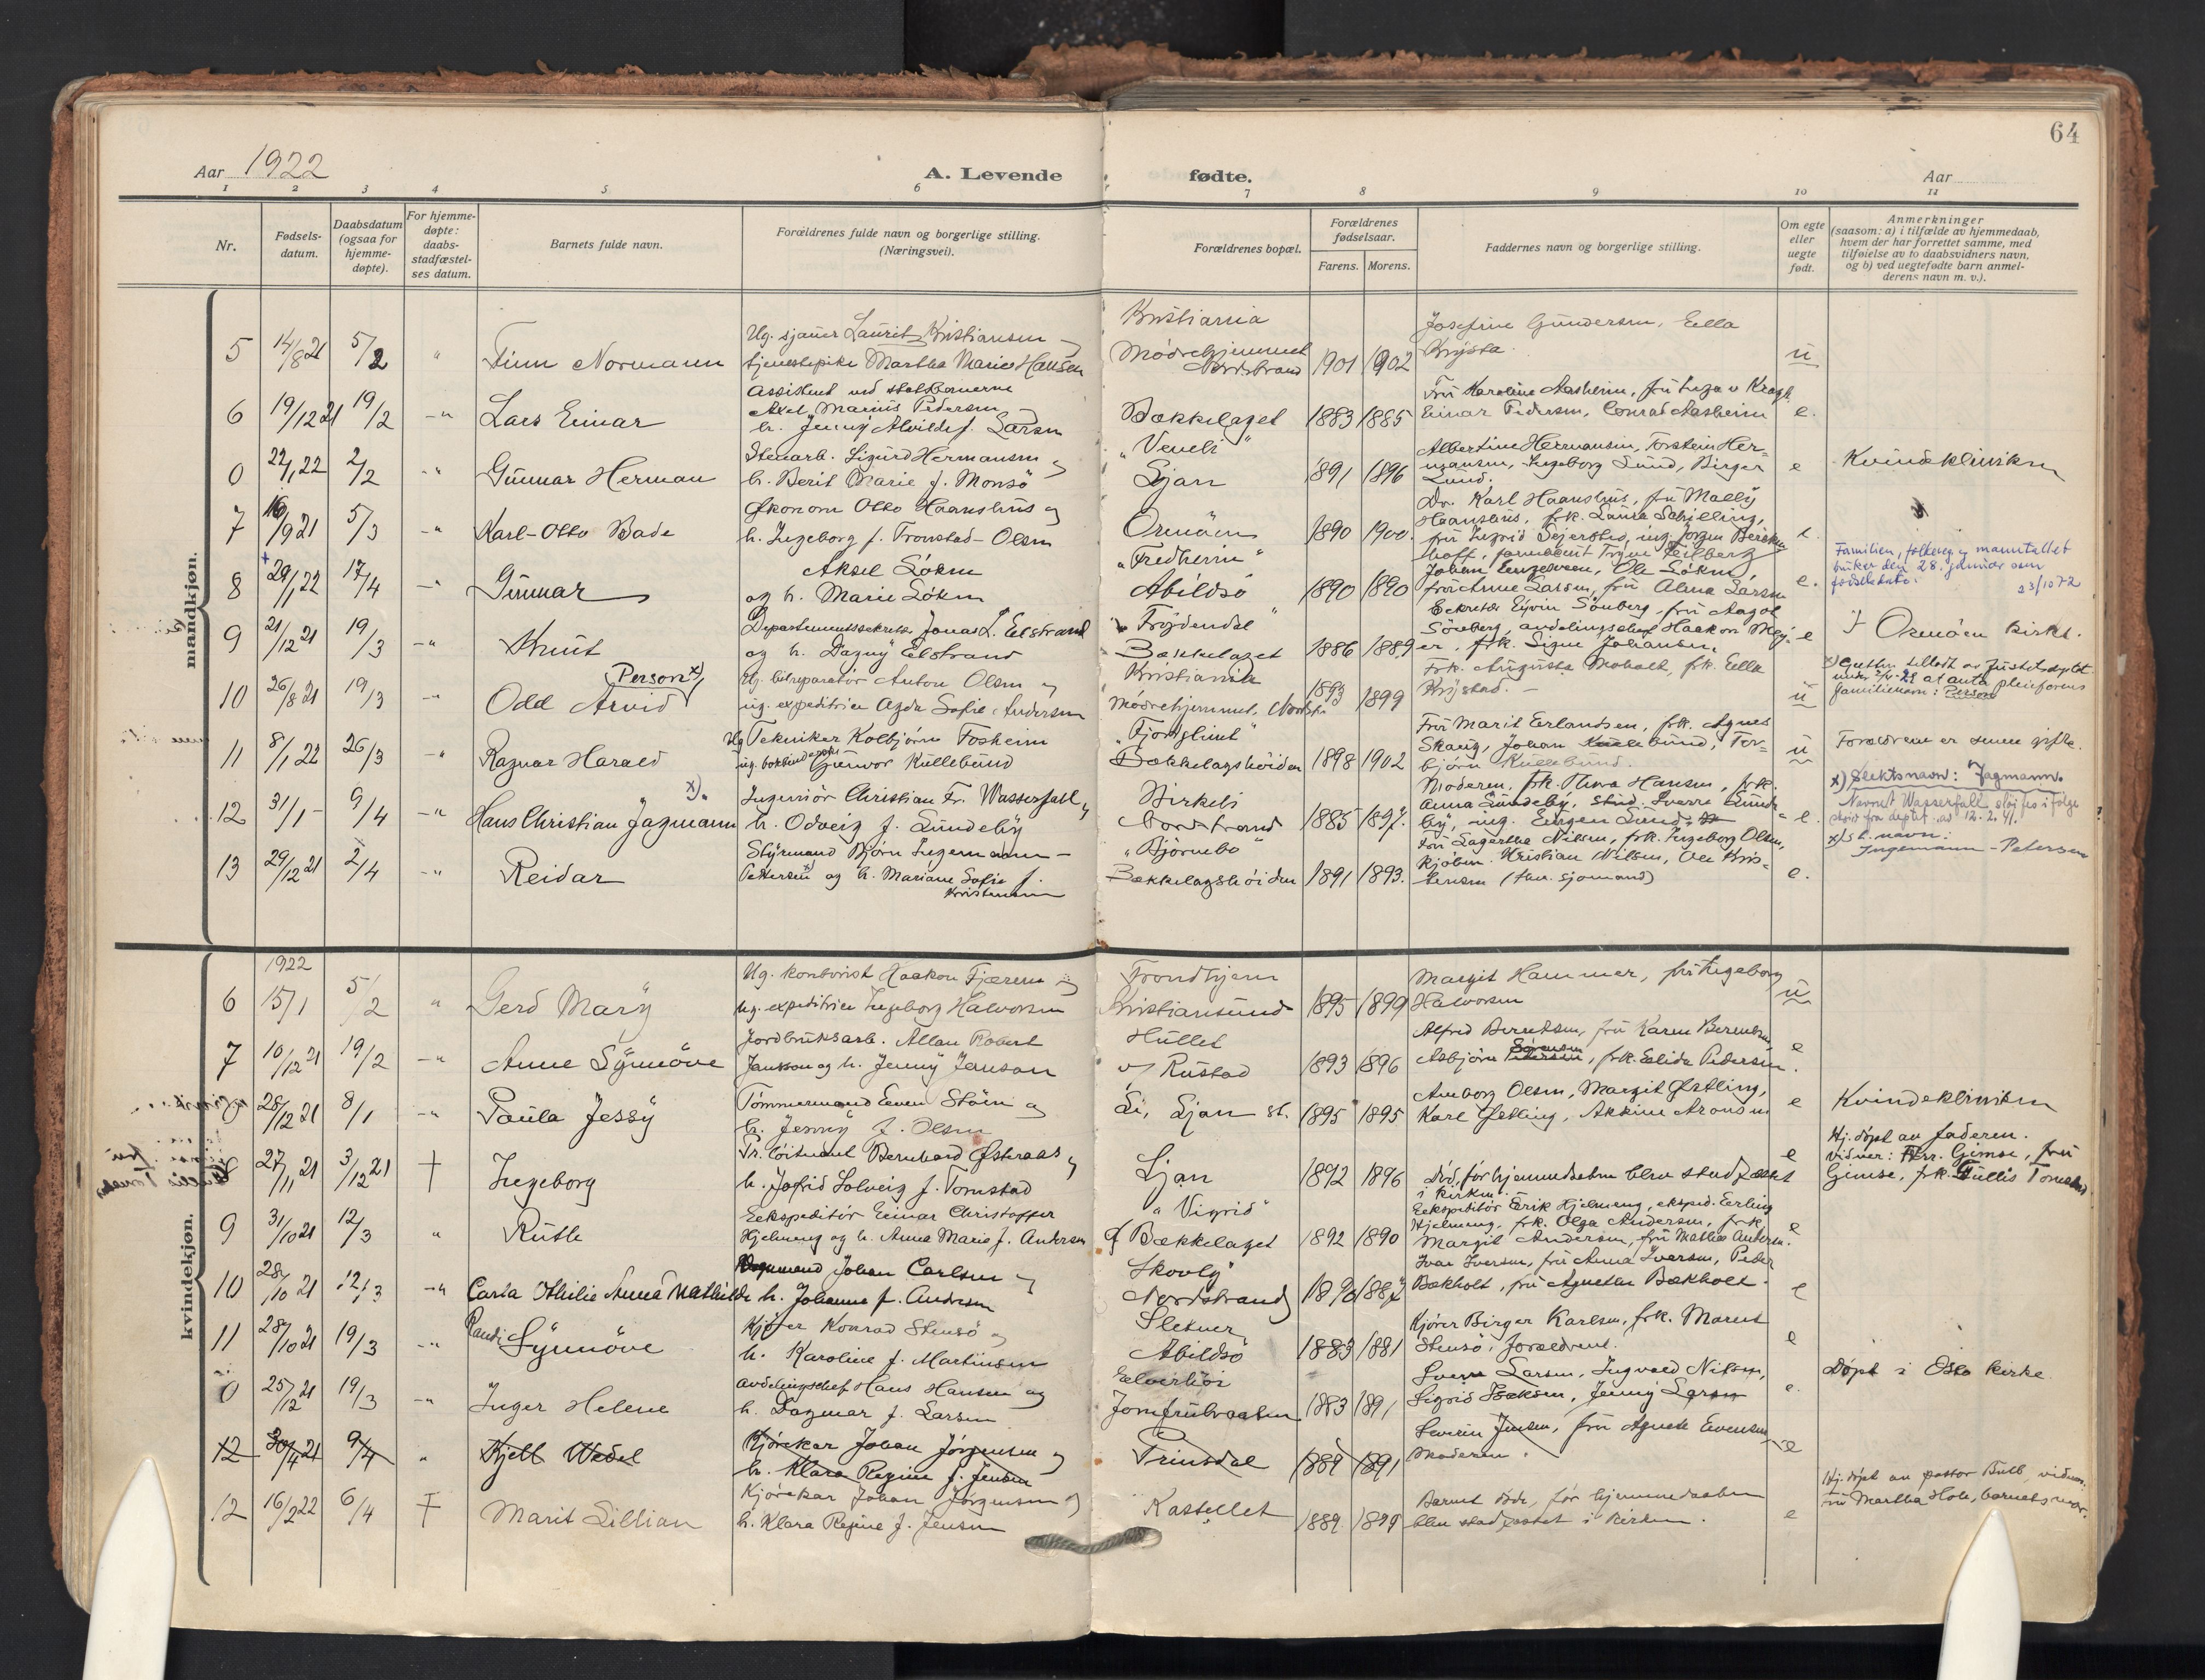 64
Aar 1922
A. Levende
fødte.
Aar
1 2 3 4 5 6 7 8 9 10 11
Nr.
Fødsels-
datum.
Daabsdatum
(ogsaa for
hjemme-
døpte).
For hjemme-
døpte:
daabs-
stadfæstel-
ses datum.
Barnets fulde navn.
Forældrenes fulde navn og borgerlige stilling.
(Næringsvei).
Forældrenes bopæl.
Forældrenes
fødselsaar.
Farens. Morens.
Faddernes navn og borgerlige stilling.
Om egte
eller
uegte
født.
Anmerkninger
(saasom: a) i tilfælde av hjemmedaab,
hvem der har forrettet samme, med
tilføielse av to daabsvidners navn,
og b) ved uegtefødte barn anmel-
derens navn m. v.).
mandkjøn.
5 14/8 21 5/2 " Finn Normann
Ug. sjauer Laurits Kristiansen
tjenestepike Martha Marie Hansen
Kristiania
Mødrehjemmet
Nordstrand
1901 1902
Josefine Gundersen, Ella
u
6 19/12 21 19/2 -"- Lars Einar
Assistent ved statsbanerne
Axel Marius Pedersen
h. Jenny Alvilde f. Larsen
Bækkelaget
1883 1885
Fru Karoline Aasheim, fru Inga v Kragh
Einar Pedersen, Conrad Aasheim
e.
0 22/1 22 2/2 -"- Gunnar Herman
Stenarb. Sigurd Hermansen og
h. Berit Marie f. Monsø
Ljan
1891 1896
Albertine Hermansen, Torstein Her-
mansen, Ingeborg Lund, Birger
Lund.
e
Kvindekliniken
7 16/9 21 5/3 -"- Karl-Otto Bade
Økonom Otto Haanshus og
h. Ingeborg f. Tronstad-Olsen
Ormøen
1890 1900.
Dr. Karl Haanshus, fru Mally
Haanshus, frk. Laura Schilling,
e.
8 29/1 22 17/4 -"- Gunnar
Aksel Søken
og h. Marie Søken
"Fredheim"
Abildsø
1890 1890
fru Anne Larsen, fru Alma Larsen
e.
Familien, folkereg. og manntallet
bruker den 28. januar som
fødselsdato.
23/10 72
9 21/12 21 19/3 -"- Knut
Departementssekretær Jonas L. Elstrand
og h. Dagny Elstrand
"Frydendal"
Bækkelaget
1886 1889
Sekretær Eyvin Sønberg, fru Aagot
Sønberg, avdelingschef Haakon Mey-
er, frk. Signe Johansen.
e
Ormøen kirke.
10 26/8 21 19/3 -"- Odd Arvid Person x)
Ug. bilreparatør Anton Olsen og
ug. expeditrice Agda Sofie Andersen
Kristiania
Mødrehjemmet, Nordstr.
1893 1899
Frk. Augusta Moholt, frk. Ella
Krystad. -
u
familienavn: Person
11 8/1 22 26/3 -"- Ragnar Harald
Ug Tekniker Kolbjørn Fosheim
Gunvor Kullebund
"Fjordglimt"
Bækkelagshøiden
1898 1902
Fru Marit Erlandsen, frk. Agnes
Skaug, Johan Kullebund, Tor-
bjørn Kullebund.
u
Forældrene er senere gifte.
12 31/1 - 9/4 -"- Hans Christian Jagmann x)
Ingeniør Christian Fr. Wasserfall og
h. Odveig f. Sundeby
Birkeli
Nordstrand
1885 1897.
Moderen, frk. Thora Hansen, frk.
Anna Sundeby, stud. Sverre Sunde-
by, ing. Eugen Lund.
e.
x) Slektsnavn: Jagmann.
Navnet Wasserfall sløifes ifølge
skriv fra deptet. av 12.2.41.
13 29/12 21 2/4 -"- Reidar
Styrmand Bjørn Ingemann-
Pettersen og h. Mariane Sofie f.
Kristensen
"Bjørnebo"
Bækkelagshøiden
1891 1893.
Fru Lagertha Nilsen, frk. Ingeborg Olsen,
kjøbm. Kristian Nilsen, Ole Kris-
tensen (fhv. sjømand)
e.
x) sl. navn:
Ingemann-Petersen
kvindekjøn.
1922
6 15/1 5/2 " Gerd Mary
Ug. kontorist Haakon Fjærem og
ug. expeditrice Ingeborg Halvorsen
Trondhjem
Kristiansund
1895 1899
Margit Hammer, fru Ingeborg
Halvorsen
u
7 10/12 21 19/2 -"- Anne Synnöve
Jordbruksarb. Allan Robert
Jansson og h. Jenny Janson
Hullet
v/ Rustad
1893 1896
Alfred Berntsen, fru Karen Berentsen,
Asbjørn Pedersen Sørensen, frk. Elida Pedersen.
e
0 28/12 21 8/1 -"- Paula Jessy
Tømmermand Even Støen og
h. Jenny f. Olsen
Li, Ljan st.
1895 1895
Amborg Olsen, Margit Østling,
Karl Østling, Akkine Aronsen
e
Kvindekliniken
8 27/11 21 3/12 21 † Ingeborg
Pr. løitnant Bernhard Østeraas og
h. Jofrid Solveig f. Tornstad
Ljan
1892 1896
Død, før hjemmedaaben blev stadfæstet
i kirken.
e
Hj. døpt av faderen.
vidner: Hrr. Gimse, fru
Gimse, frk. Gullis Tornstad
9 31/10 21 12/3 " Ruth
Ekspeditør Einar Christoffer
Hjelmeng og h. Anna Marie f. Andersen
"Vigrid"
Bækkelaget
1892 1890
Ekspeditør Erik Hjelmeng, eksped. Erling
Hjelmeng, frk. Olga Andersen, frk.
Margit Andersen, fru Mathea Andersen.
e
10 28/10 21 12/3 -"- Carla Othilie Anna Mathilde
Johan Carlsen og
h. Johanne f. Andersen
Skovly
Nordstrand
1890 1887
Ivar Iversen, fru Anna Iversen, Peder
Bækholt, fru Agnethe Bækholt.
e
11 28/10 21 19/3 -"- Randi Synnöve
Kjører Konrad Stensø og
h. Karoline f. Martinsen
Sletner
Abildsø
1883 1881
Kjører Birger Karlsen, frk. Marent
Stensø, forældrene.
e
0 25/12 21 19/3 -"- Inger Helene
Avdelingschef Hans Hansen og
h. Dagmar f. Larsen
Elverhøi
Jomfrubraaten
1883 1891
Sverre Larsen, Ingvald Nilsen,
Sigrid Isaksen, Jenny Larsen
e.
Døpt i Oslo kirke
12 30/4 21 9/4 " Kjell Wedel
Kjørekar Johan Jørgensen og
h. Klara Regine f. Jensen
Prinsdal
1889 1891
Severin Jensen, fru Agnete Evensen
Moderen.
e
12 16/2 22 6/4 † Marit Lillian
Kjørekar Johan Jørgensen og
h. Klara Regine f. Jensen
Kastellet
1889 1899
Barnet døde, før hjemmedaaben
blev stadfæstet i kirken.
e
Hj. døpt av pastor Bull, vidner:
fru Martha Hole, barnets mor.